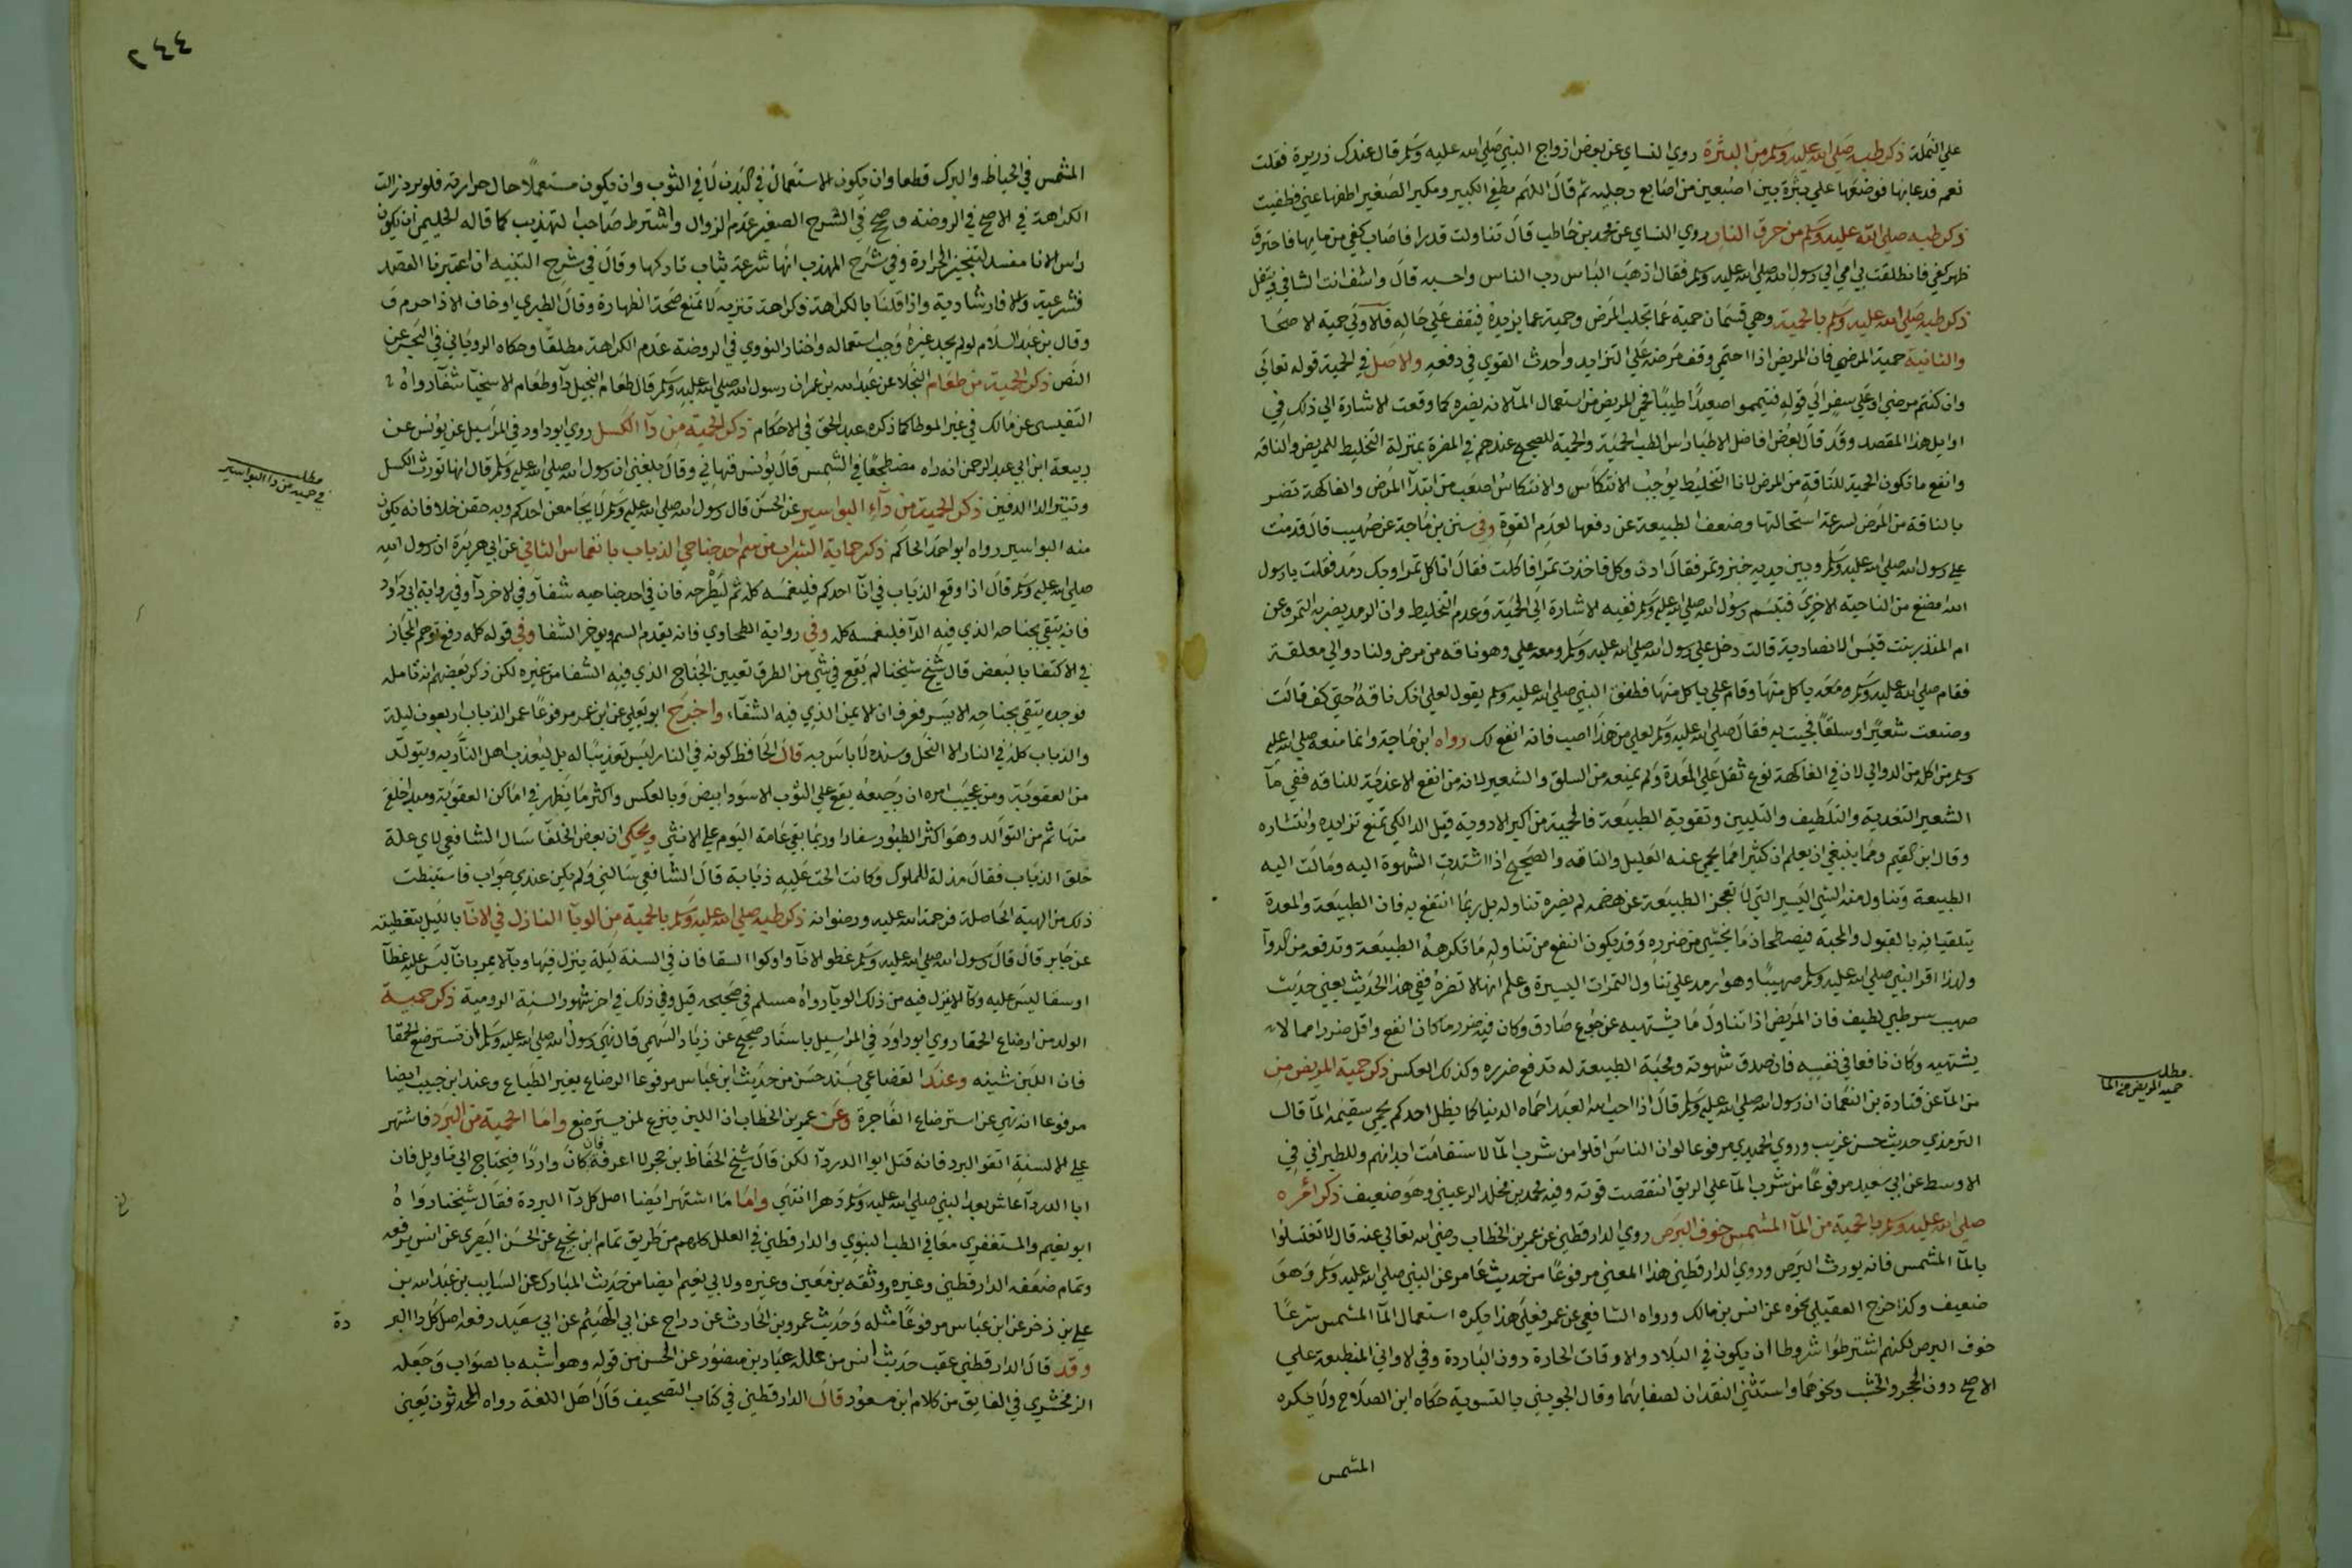 على النملة ذكر طبه صلى الله عليه وسلم من البثرة روي النساي عن بعض ازواج النبي صلى الله عليه وسلم قال عندك ذريرة فقلت
نعم فدعا بها فوضعها علي بثرة بين اصبعين من اصابع رجليه ثم قال اللهم مطفي الكبير ومكبر الصغير اطفها عني فطفيت
ذكر طبه صلى الله عليه وسلم من حرق النار روي النساي عن محمد بن حاطب قال تناولت قدرا فاصاب كفي من مايها فاحترق
ظهر كفي فانطلقت بي امي الي رسول الله صلى الله عليه وسلم فقال اذهب الباس رب الناس واحسبه قال واشف انت الشافي ويتفل
ذكر طبه صلى الله عليه وسلم بالحمية وهي قسمان حمية عما يجلب المرض وحمية عما يزيده فيقف علي حاله فالاولي حمية الاصحا
والثانية حمية المرضي فان المريض اذا احتمي وقف مرضه على التزايد واخذت القوي في دفعه والاصل في الحمية قوله تعالي
وان كنتم مرضي او علي سفر الي قوله فتيمموا صعيدا طيبا فحمي المريض من استعمال المآ لانه يضره كما وقعت الاشارة الي ذلك في
اوايل هذا المقصد وقد قال بعض افاضل الاطبا راس الطب الحمية والحمية للصحيح عندهم في المضرة بمنزلة التخليط للمريض والناقه
وانفع ما تكون الحمية للناقة من المرض لانا التخليط يوجب الانتكاس والانتكاس اصعب من ابتدآ المرض والفاكهة تضر
بالناقة من المرض لسرعة استحالتها وضعف الطبيعة عن دفعها لعدم القوة وفي سنن بن ماجة عن صهيب قال قدمت
علي رسول الله صلى الله عليه وسلم وبين يديه خبز وتمر فقال ادن وكل فاخذت تمرا فاكلت فقال اتاكل تمرا وبك رمد فقلت يا رسول
الله امضغ من الناحية الاخري فتبسم رسول الله صلى الله عليه وسلم ففيه الاشارة الي الحمية وعدم التخليط وان الرمد يضر به التمر وعن
ام المنذر بنت قيس الانصارية قالت دخل علي رسول الله صلى الله عليه وسلم ومعه علي وهو ناقه من مرض ولنا دوالي معلقة
فقام صلى الله عليه وسلم ومعه ياكل منها وقام علي ياكل منها فطفق النبي صلى الله عليه وسلم يقول لعلي انك ناقه حتي كف قالت
وصنعت شعيرا وسلقا فجيت به فقال صلى الله عليه وسلم لعلي من هذا اصب فانه انفع لك رواه ابن ماجة وانما منعه صلى الله عليه
وسلم من اكله من الدوالي لان في الفاكهة نوع ثقل علي المعدة ولم يمنعه من السلق والشعير لانه من انفع الاغذية للناقه ففي مآ
الشعير التغدية والتلطيف والتليين وتقوية الطبيعة فالحمية من اكبر الادوية قبل الدا لكي تمنع تزايده وانتشاره
وقال ابن القيم ومما ينبغي ان يعلم ان كثيرا مما يحمي عنه العليل والناقه والصحيح اذا اشتدت الشهوة اليه ومالت اليه
الطبيعة وتناول منه الشي اليسير التي لا تعجز الطبيعة عن هضمه لم يضره تناوله بل ربما انتفع به فان الطبيعة والمعدة
يتلقيانه بالقبول والمحبة فيصلحان ما يخشي من ضرره وقد يكون انفع من تناوله ما تكرهه الطبيعة وتدفعه من الدوآ
ولهذا اقر النبي صلى الله عليه وسلم صهيبا وهو ارمد علي تناول التمرات اليسيرة وعلم انها لا تضره ففي هذا الحديث يعني حديث
صهيب سر طبي لطيف فان المريض اذا تناول ما يشتهيه عن جوع صادق وكان فيه ضرر ما كان انفع واقل ضررا مما لا
يشتهيه وكان نافعا في نفسه فان صدق شهوته ومحبة الطبيعة له تدفع ضرره وكذلك العكس ذكر حمية المريض من
من المآ عن قتادة بن النعمان ان رسول الله صلى الله عليه وسلم قال اذا احب الله العبد احماه الدنيا كما يظل احدكم يحمي سقيمه المآ قال
الترمذي حديث حسن غريب وروي الحميدي مرفوعا لوان الناس اقلوا من شرب المآ لاستقامت ابدانهم وللطبراني في
الاوسط عن ابي سعيد مرفوعا من شرب المآ علي الريق انتقصت قوته وفيه محمد بن مخلد الرعيني وهو ضعيف ذكر امره
صلى الله عليه وسلم بالحمية من المآ المشمس خوف البرص روي الدارقطني عن عمر بن الخطاب رضي الله تعالي عنه قال لا تغتسلوا
بالمآ المشمس فانه يورث البرص وروي الدارقطني هذا المعني مرفوعا من حديث عامر عن النبي صلى الله عليه وسلم وهو
ضعيف وكذا خرج العقيلي نحوه عن انس بن مالك ورواه الشافعي عن عمر فعلي هذا يكره استعمال المآ المشمس شرعا
خوف البرص لكنهم اشترطوا شروطا ان يكون في البلاد والاوقات الحارة دون الباردة وفي الاواني المنطبعة علي
الاصح دون الحجر والخشب ونحوهما واستثني النقدان لصفايهما وقال الجويني بالتسوية حكاه ابن الصلاح ولا يكره
المشمس
مطلب
حمية المريض من الما
٢٤٤
المشمس في الحياض والبرك قطعا وان يكون الاستعمال في البدن لا في الثوب وان يكون مستعملا حال حرارته فلو برد زالت
الكراهة في الاصح في الروضة وصحح في الشرح الصغير عدم الزوال واشترط صاحب التهذيب كما قاله الجليمي ان يكون
راس الانا منسدا لتنحبس الحرارة وفي شرح المهذب انها شرعية يثاب تاركها وقال في شرح التنبيه ان اعتبرنا القصد
فشرعية والا فارشادية واذا قلنا بالكراهة فكراهة تنزيه لا تمنع صحة الطهارة وقال الطبري ان خاف الاذا حرم و
وقال بن عبد السلام لو لم يجد غيره وجب استعماله واختار النووي في الروضة عدم الكراهة مطلقا وحكاه الروياني في البحر عن
النص ذكر الحمية من طعام البخلا عن عبد الله بن عمر ان رسول الله صلى الله عليه وسلم قال طعام البخيل دآ وطعام الاسخيآ شفآ رواه
التنيسي عن مالك في غير الموطا كما ذكره عبد الحق في الاحكام ذكر الحمية من دآ الكسل روي ابو داود في المراسيل عن يونس عن
ربيعة ابن ابي عبد الرحمن انه راه مضطجعا في الشمس قال يونس فنهاني وقال بلغني ان رسول الله صلى الله عليه وسلم قال انها تورث الكسل
وتثير الدا الدفين ذكر الحمية من دآء البواسير عن الحسن قال رسول الله صلى الله عليه وسلم لا يجامعن احدكم وبه حقن خلا فانه يكون
منه البواسير رواه ابو احمد الحاكم ذكر حماية الشراب من سم احد جناحي الذباب بانغماس الثاني عن ابي هريرة ان رسول الله
صلى الله عليه وسلم قال اذا وقع الذباب في انآ احدكم فليغمسه كله ثم ليطرحه فان في احد جناحيه شفآ وفي الاخر دآ وفي رواية ابي داود
فانه يتقي بجناحه الذي فيه الدآ فليغمسه كله وفي رواية الطحاوي فانه يقدم السم ويوخر الشفا وفي قوله كله رفع توهم المجاز
في الاكتفا بالبعض قال شيخ شيخنا لم يقع في شي من الطرق تعيين الجناح الذي فيه الشفا من غيره لكن ذكر بعضهم انه تامله
فوجده يتقي بجناحه الايسر فعرف ان الايمن الذي فيه الشفآء واخرج ابو يعلي عن ابن عمر مرفوعا عمر الذباب اربعون ليلة
والذباب كله في النار الا النحل وسنده لا باس به قال الحافظ كونه في النار ليس تعذيبا له بل ليعذب اهل النار به ويتولد
من العفونة ومن عجيب امره ان رجيعه يقع علي الثوب الاسود ابيض وبالعكس واكثر ما يظهر في اماكن العفونة ومبدا خلقه
منها ثم من التوالد وهو اكثر الطيور سفادا وربما بقي عامة اليوم علي الانثي ويحكي ان بعض الخلفا سال الشافعي لاي علة
خلق الذباب فقال مذلة للملوك وكانت الحت عليه ذبابة قال الشافعي سالني ولم يكن عندي جواب فاستنبطت
ذلك من الهيئة الحاصلة فرحمة الله عليه ورضوانه ذكر طبه صلى الله عليه وسلم بالحمية من الوبآ النازل في الانآ بالليل بتغطيته
عن جابر قال قال رسول الله صلى الله عليه وسلم غطوا الانآ واوكوا السقا فان في السنة ليلة ينزل فيها وبآ لا يمر بانآ ليس عليه غطآ
او سقا ليس عليه وكآ الا نزل فيه من ذلك الوبآ رواه مسلم في صحيحه قيل وفي ذلك في اخر شهور السنة الرومية ذكر حمية
الولد من ارضاع الحمقا روي ابو داود في المراسيل باسناد صحيح عن زياد السهمي قال نهي رسول الله صلى الله عليه وسلم ان تسترضع الحمقا
فان اللبن شينه وعند القضاعي بسند حسن من حديث ابن عباس مرفوعا الرضاع يغير الطباع وعند ابن حبيب ايضا
مرفوعا انه نهي عن استرضاع الفاجرة وعن عمر بن الخطاب ان اللبن ينزع لمن يسترضع واما الحمية من البرد فاشتهر
علي الالسنة اتقوا البرد فانه قتل ابوا الدردآ لكن قال شيخ الحفاظ بن حجر لا اعرفه فان كان واردا فيحتاج الي تاويل فان
ابا الدردآ عاش بعد النبي صلى الله عليه وسلم دهرا انتهي واما ما اشتهر ايضا اصل كل دآ البردة فقال شيخنا رواه
ابو نعيم والمستغفري معا في الطب النبوي والدارقطني في العلل كلهم من طريق تمام ابن نجيح عن الحسن البصري عن انس يرفعه
وتمام ضعفه الدارقطني وغيره ووثقه بن معين وغيره ولابي نعيم ايضا من حديث المبارك عن السايب بن عبد الله بن
علي بن زخر عن ابن عباس مرفوعا مثله وحديث عمرو بن الحارث عن دراج عن ابي الهيثم عن ابي سعيد رفعه اصل كل دا البر
دة
وقد قال الدارقطني عقب حديث انس من علله عباد بن منصور عن الحسن من قوله وهو اشبه بالصواب وجعله
الزمخشري في الفايق من كلام ابن مسعود قال الدارقطني في كتاب التصحيف قال اهل اللغة رواه المحدثون يعني
مطلب
في حمية من دا البواسير